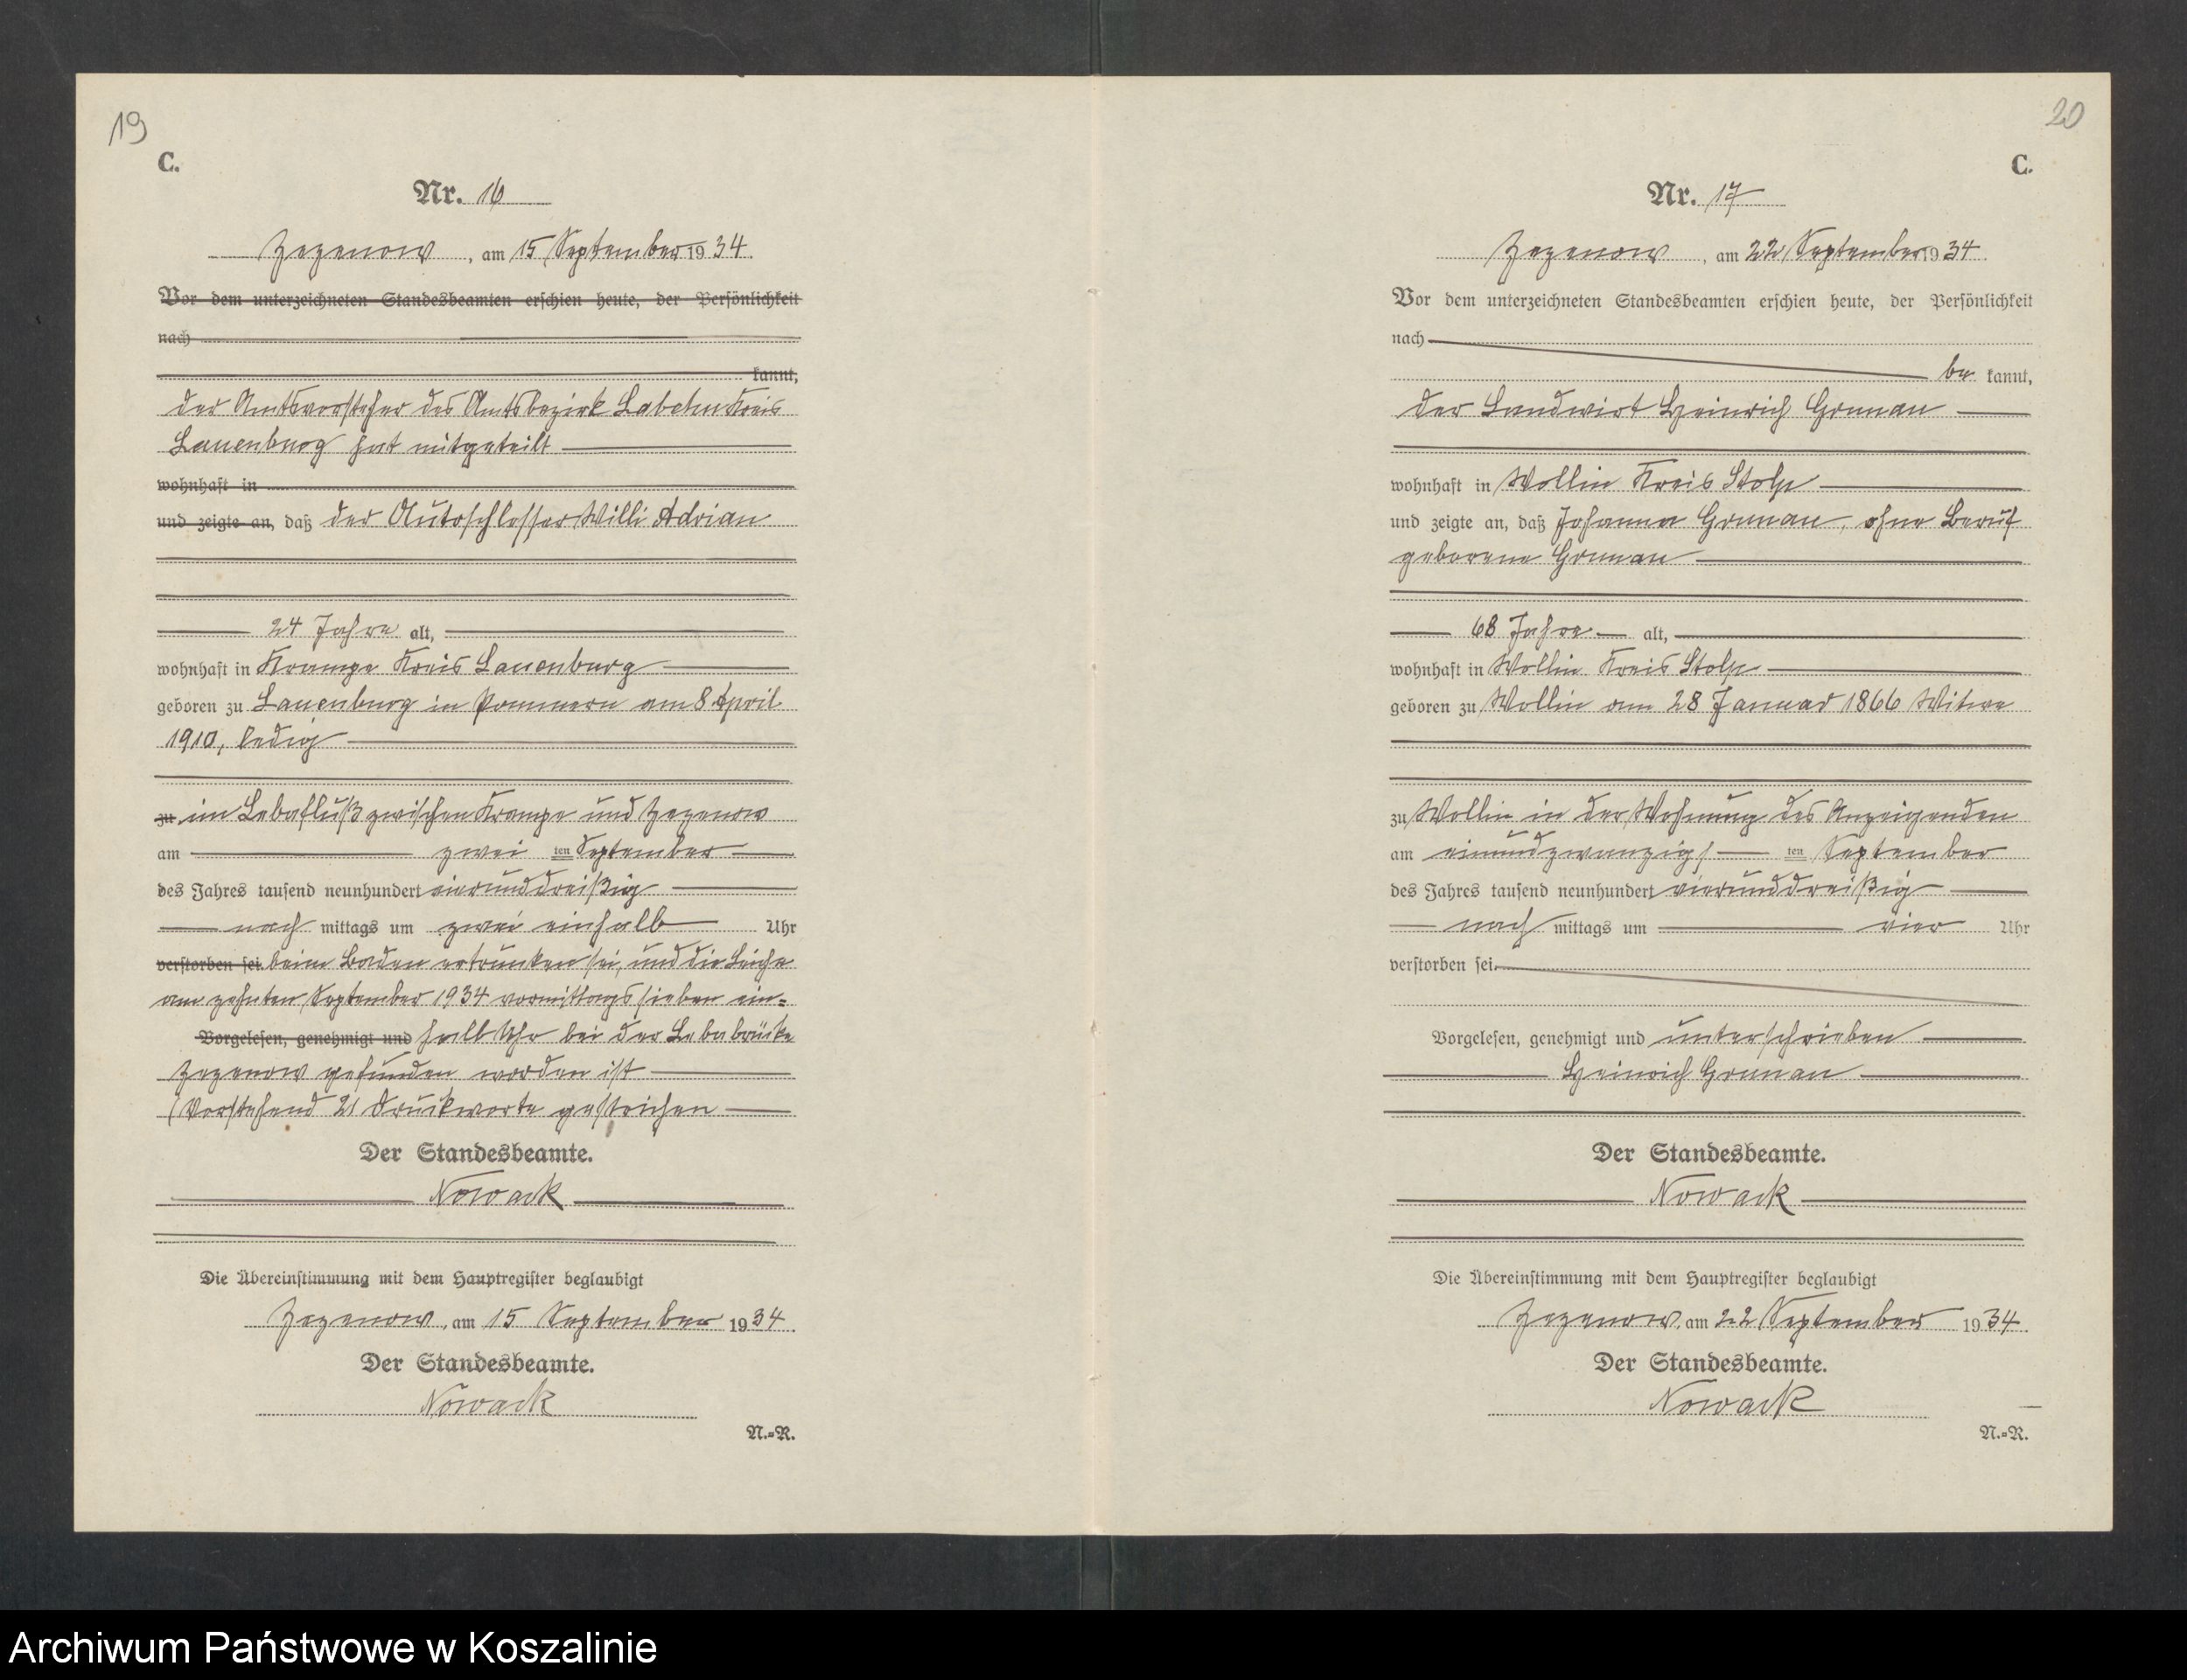 19
C.
Nr. 16
Zezenow, am 15 September 1934.
Vor dem unterzeichneten Standesbeamten erschien heute, der Persönlichkeit
nach
kannt,
der Amtsvorsteher des Amtsbezirk Labehn Kreis
Lauenburg hat mitgeteilt
wohnhaft in
und zeigte an, daß der Autoschlosser Willi Adrian
24 Jahre alt,
wohnhaft in Krampe Kreis Lauenburg
geboren zu Lauenburg in Pommern am 8 April
1910, ledig
zu im Lebafluß zwischen Krampe und Zezenow
am zwei ten September
des Jahres tausend neunhundert vierunddreißig
nach mittags um zwei einhalb Uhr
verstorben sei. beim Baden ertrunken sei, und die Leiche
am zehnten September 1934 vormittags sieben ein-
Vorgelesen, genehmigt und halb Uhr bei der Lebabrücke
Zezenow gefunden worden ist
(Vorstehend 21 Druckworte gestrichen
Der Standesbeamte.
Nowack
Die Übereinstimmung mit dem Hauptregister beglaubigt
Zezenow, am 15 September 1934.
Der Standesbeamte.
Nowack
N.-R.
20
C.
Nr. 17
Zezenow, am 22 September 1934.
Vor dem unterzeichneten Standesbeamten erschien heute, der Persönlichkeit
nach
be kannt,
der Landwirt Heinrich Grunau
wohnhaft in Wollin Kreis Stolp
und zeigte an, daß Johanna Grunau, ohne Beruf
geborene Grunau
68 Jahre alt,
wohnhaft in Wollin Kreis Stolp
geboren zu Wollin am 28 Januar 1866 Witwe
zu Wollin in der Wohnung des Anzeigenden
am einundzwanzigs ten September
des Jahres tausend neunhundert vierunddreißig
nach mittags um vier Uhr
verstorben sei.
Vorgelesen, genehmigt und unterschrieben
Heinrich Grunau
Der Standesbeamte.
Nowack
Die Übereinstimmung mit dem Hauptregister beglaubigt
Zezenow, am 22 September 1934.
Der Standesbeamte.
Nowack
N.-R.
Archiwum Państwowe w Koszalinie